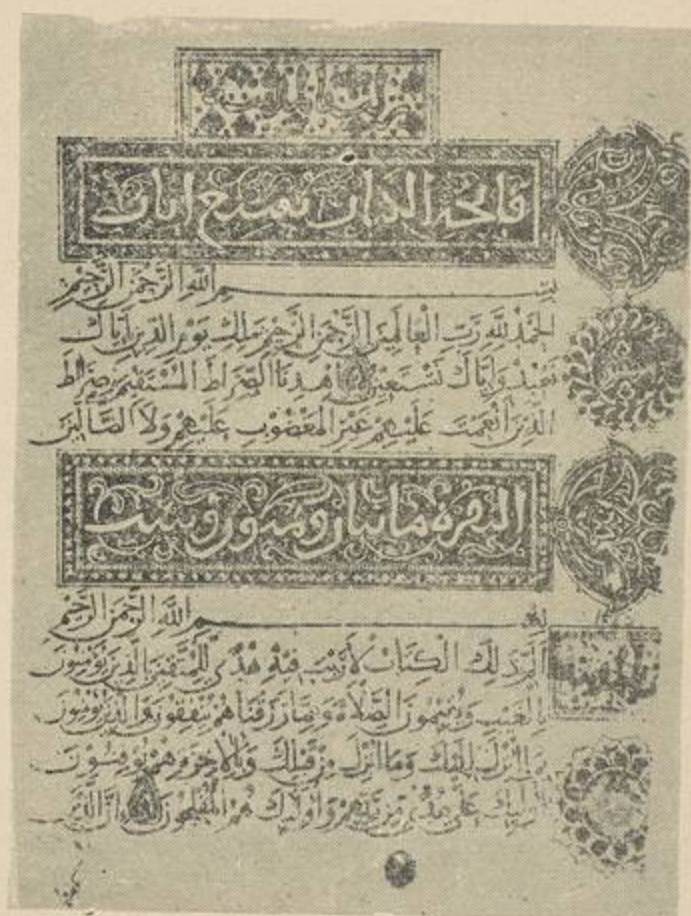 فاتحة الكتاب سبع ايات
بسم الله الرحمن الرحيم
الحمد لله رب العالمين الرحمن الرحيم ملك يوم الدين اياك
نعبد واياك نستعين اهدنا الصراط المستقيم صراط
الذين انعمت عليهم غير المغضوب عليهم ولا الضالين
البقرة مائتان وثمنون وست
بسم الله الرحمن الرحيم
الم ذلك الكتاب لا ريب فيه هدى للمتقين الذين يؤمنون
بالغيب ويقيمون الصلاة ومما رزقناهم ينفقون والذين يؤمنون
بما انزل اليك وما انزل من قبلك وبالاخرة هم يوقنون
اولئك على هدى من ربهم واولئك هم المفلحون ان الذين